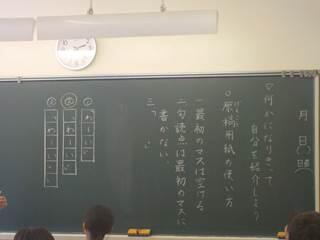 月　日（　）
▽何かになりきって
自分を紹介しよう
○原稿用紙の使い方
一最初のマスは空ける
二句読点は最初のマスに
書かない。
三「
①「わーい。」
②「わーい。」
③「わーい。」